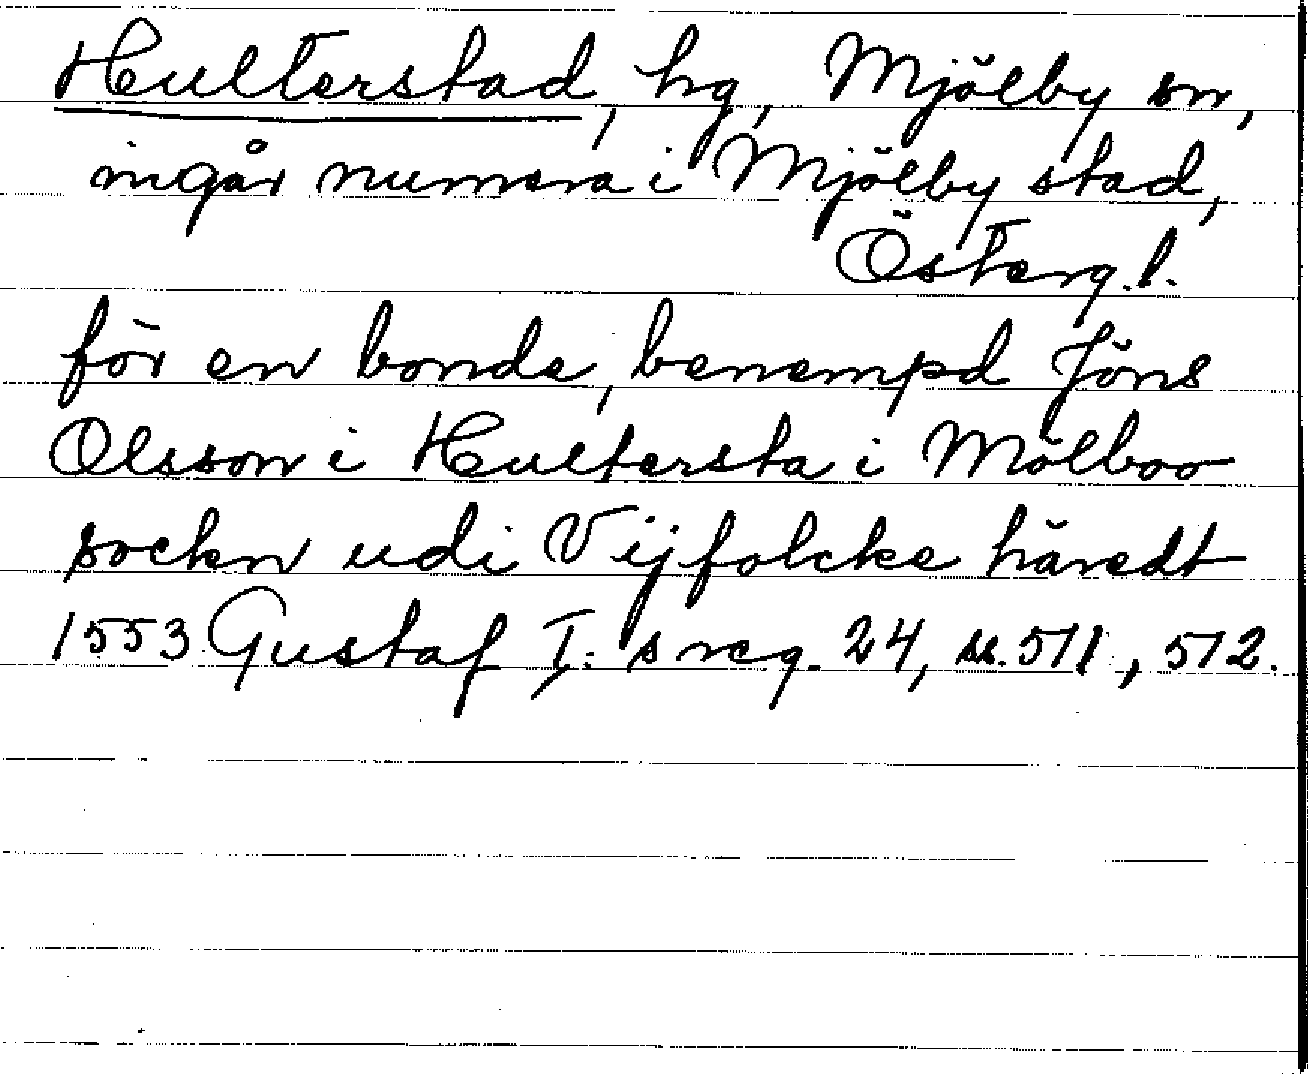 Hulterstad, hg, Mjölby sn,
ingår numera i Mjölby stad,
Österg. l.
för en bonde, benempd Jöns
Olsson i Hultersta i Mölboo
sockn udi Vijfolcke häredt
1553 Gustaf I:s reg. 24, ss. 511, 512.